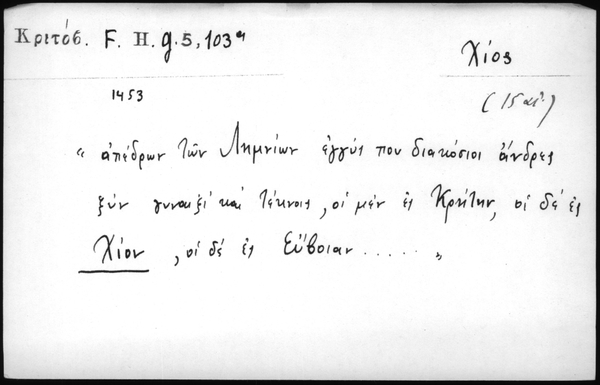 Κριτόβ. F. H. g. 5, 103ᵃ
Χίος
1453
(15 αἰ.)
" ἀπέδρων τῶν Λημνίων ἐγγύς που διακόσιοι ἄνδρες
ξύν γυναιξί καί τέκνοις, οἱ μέν ἐς Κρήτην, οἱ δέ ἐς
Χίον, οἱ δέ ἐς Εὔβοιαν ...... "